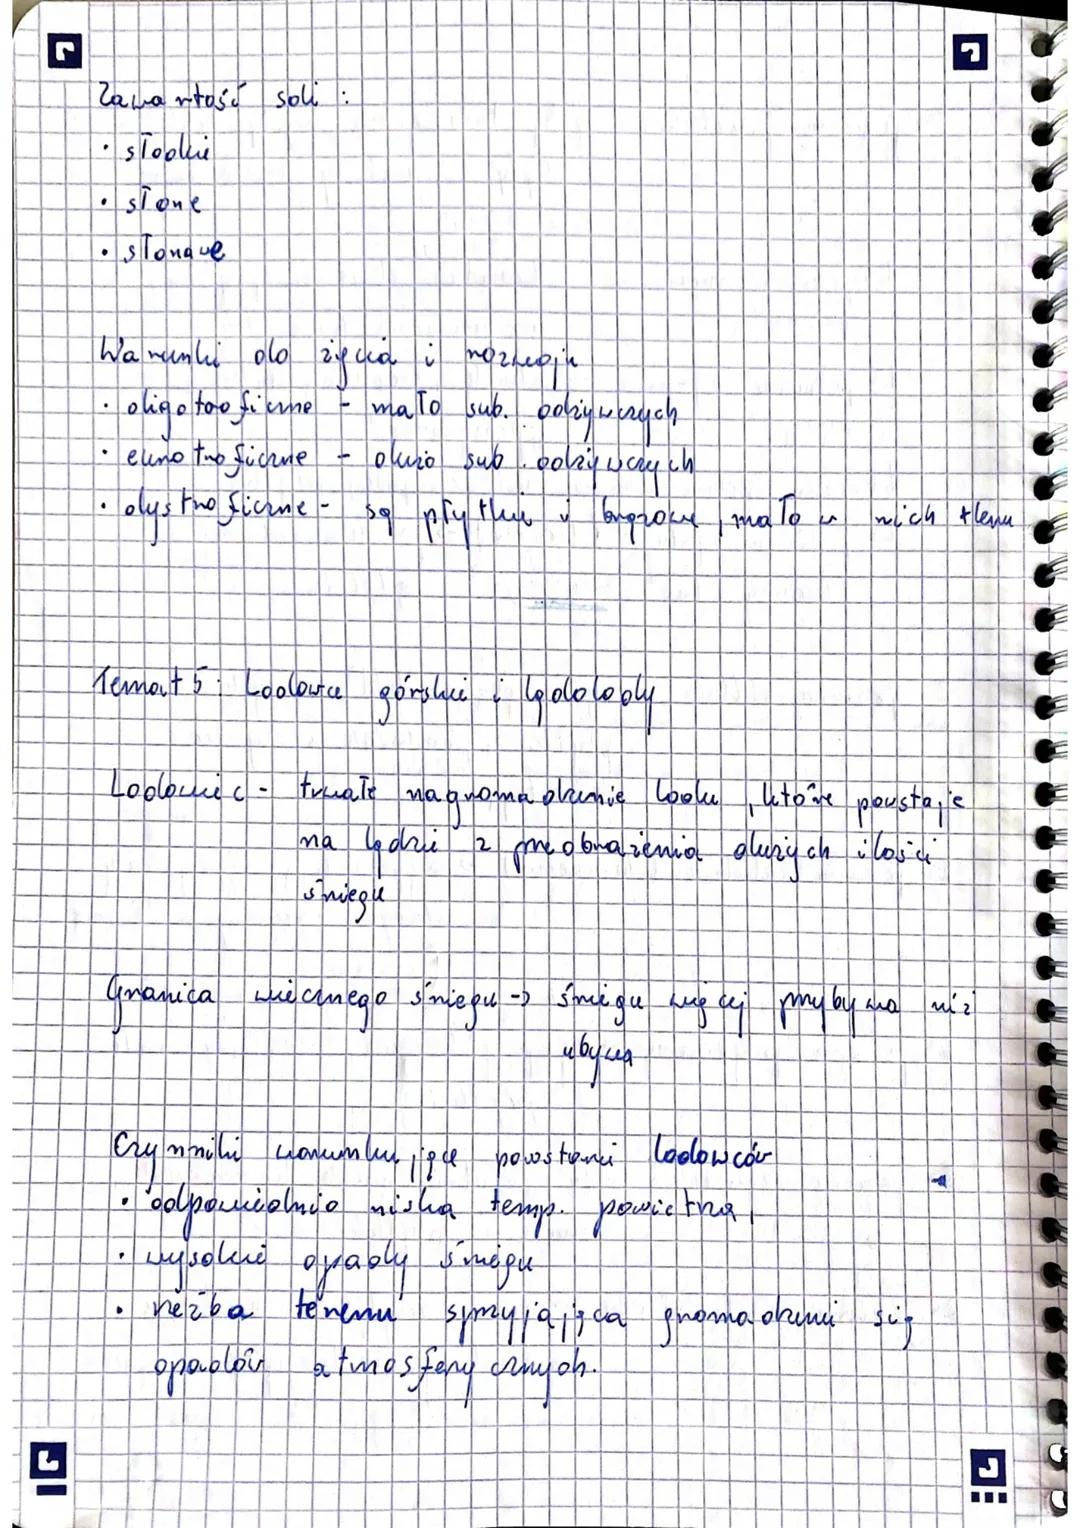 Zawartość soli :
• słodkie
• słone
• słonawe
Warunki do życia i rozwoju
• oligotroficzne - mało sub. odżywczych
• eutrotroficzne - dużo sub. odżywczych
• dystroficzne - są płytkie i brązowe, mało w nich tlenu
Temat 5: Lodowce górskie i lądolody
Lodowiec - trwałe nagromadzenie lodu, które powstaje
na lądzie z przeobrażenia dużych ilości
śniegu
Granica wiecznego śniegu -> śniegu więcej przybywa niż
ubywa
Czynniki warunkujące powstanie lodowców
• odpowiednio niska temp. powietrza,
• wysokie opady śniegu
• rzeźba terenu sprzyjająca gromadzeniu się
opadów atmosferycznych.